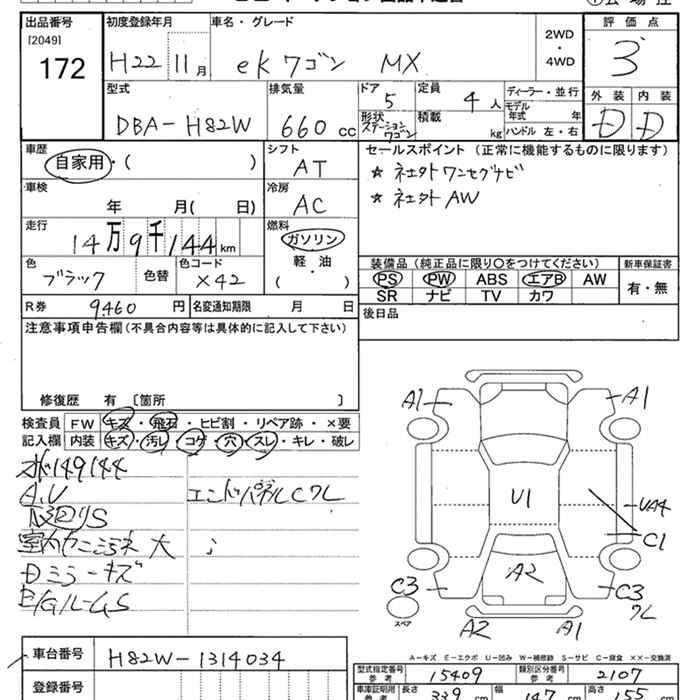 出品番号 初度登録年月 車名・グレード 評価点
[2049]
172 H22 11月 ekワゴン MX 2WD・4WD 3
型式 排気量 ドア 定員 ディーラー・並行 外装 内装
DBA-H82W 660cc 5 4人 モデル年式 年 D D
形状 ステーションワゴン 積載 kg ハンドル 左・右
車歴 シフト セールスポイント (正常に機能するものに限ります)
自家用・( ) AT ☆ 社外ワンセグナビ
車検 冷房 ☆ 社外AW
年 月( 日) AC
走行 燃料
14万9千144km ガソリン
色 色コード 軽・油
ブラック 色替 X42 ( )
装備品 (純正品に限り〇をつけてください) 新車保証書
PS PW ABS エアB AW 有・無
SR ナビ TV カワ
R券 9,460円 名変通知期限 月 日 後日品
注意事項申告欄 (不具合内容等は具体的に記入して下さい)
修復歴 有 〔箇所 〕
検査員 FW キズ・飛石・ヒビ割・リペア跡・×要
記入欄 内装 キズ・汚レ・コゲ・穴・スレ・キレ・破レ
149144
A.U エンドパネルCクレ
S
大
キズ
A1 A1
U1
UA4
C1
A2
C3 C3
クレ
スペア
A2 A1
A-キズ E-エクボ U-凹み W-補修跡 S-サビ C-腐食 ××-交換済
車台番号 H82W-1314034
型式指定番号 参考 15409 類別区分番号 参考 2107
登録番号
車庫証明用 参考 長さ 339cm 幅 147cm 高さ 155cm